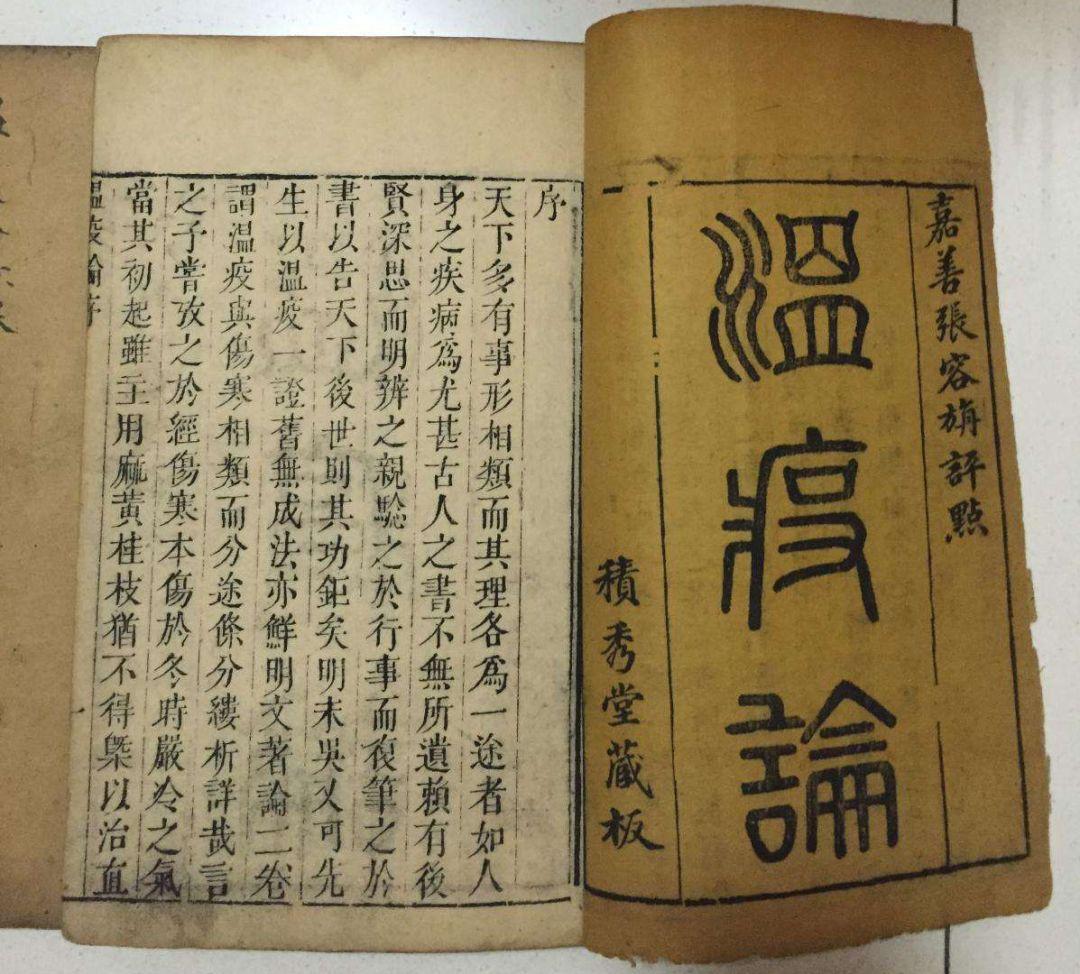 嘉善張容旃評點
溫疫論
積秀堂藏板
序
天下多有事形相類而其理各爲一途者如人
身之疾病爲尤甚古人之書不無所遺賴有後
賢深思而明辨之親驗之於行事而復筆之於
書以告天下後世則其功鉅矣明末吳又可先
生以溫疫一證舊無成法亦鮮明文著論二卷
謂溫疫與傷寒相類而分途條分縷析詳哉言
之予嘗攷之於經傷寒本傷於冬時嚴冷之氣
當其初起雖主用麻黃桂枝猶不得槩以治直
溫疫論序